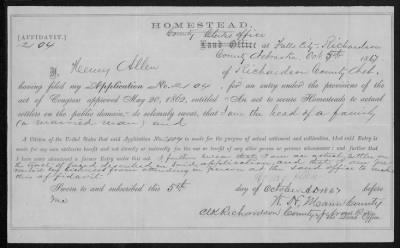 HOMESTEAD.
County Clerks Office
[AFFIDAVIT.]
2104
Land Office at Falls City Richardson
County Nebraska Oct 5th 1867
I, Henry Allen of Richardson County Neb.
having filed my Application No. 2104, for an entry under the provisions of the
act of Congress approved May 20, 1862, entitled "An act to secure Homesteads to actual
settlers on the public domain," do solemnly swear, that I am the head of a family
(a married man) and
A Citizen of the United States that said Application No. 2104 is made for the purpose of actual settlement and cultivation; that said Entry is
made for my own exclusive benefit and not directly or indirectly for the use or benefit of any other person or persons whomsoever; and further that
I have never abandoned a former Entry under this act. I further swear that I am an actual settler on
the tract of land described in said application and that I am prevented
by business from attending in person at the Land office to make
this affidavit.
Henry Allen
Sworn to and subscribed this 5th day of October A D 1867 before
me W. H. Mann County
Clk Richardson County
of the Land Office.